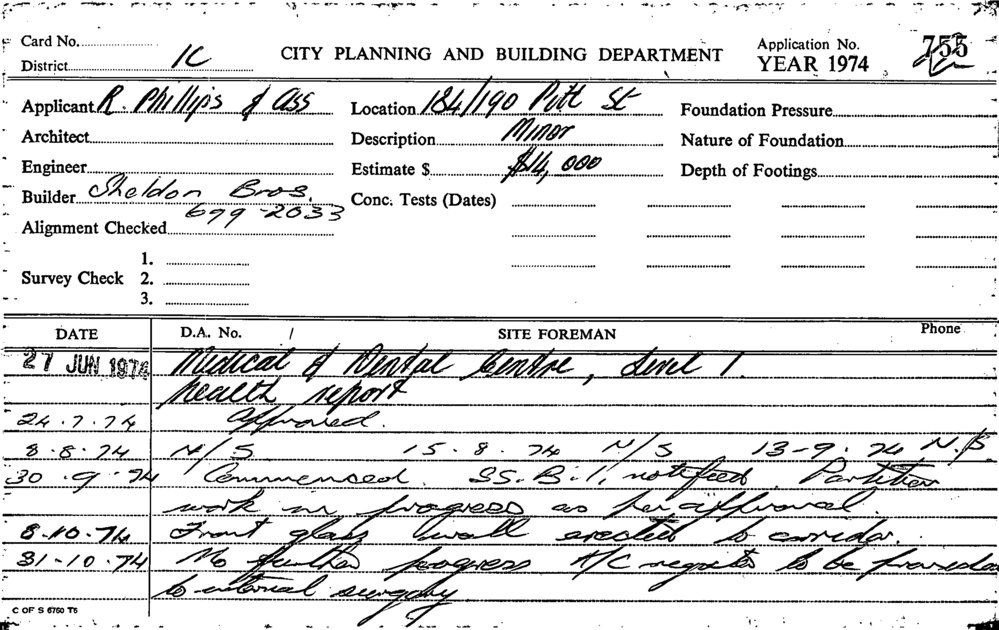 Card No.
District 1C
CITY PLANNING AND BUILDING DEPARTMENT
Application No. 755
YEAR 1974
Applicant R. Phillips & Ass
Location 184/190 Pitt St
Foundation Pressure
Architect
Description Minor
Nature of Foundation
Engineer
Estimate $ $14,000
Depth of Footings
Builder Sheldon Bros.
699-2033
Conc. Tests (Dates)
Alignment Checked
Survey Check 1.
2.
3.
DATE D.A. No. / SITE FOREMAN Phone
27 JUN 1974 Medical & Dental Centre, Level 1.
Health report
24.7.74 Approved.
8.8.74 N/S 15.8.74 N/S 13-9.74 N/S.
30.9.74 Commenced. notified. Partition
work in progress as per approval.
8.10.74 Front glass wall erected to corridor.
31-10.74 No further progress A/C to be provided
to internal surgery
C OF S 6760 T6